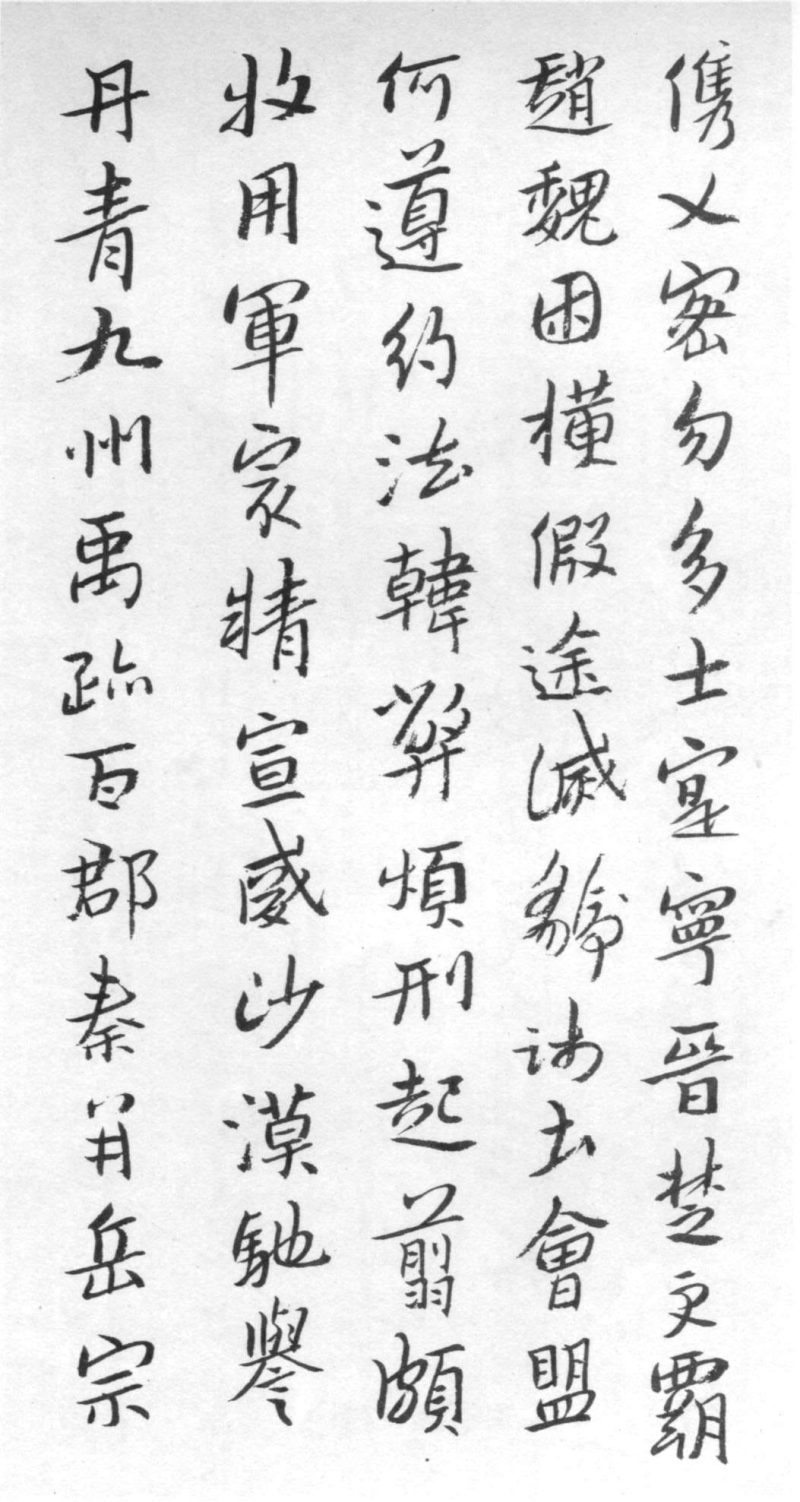 俊乂密勿多士寔寧晉楚更霸
趙魏困橫假途滅虢踐土會盟
何遵約法韓弊煩刑起翦頗
牧用軍宼精宣威沙漠馳譽
丹青九州禹跡百郡秦并岳宗